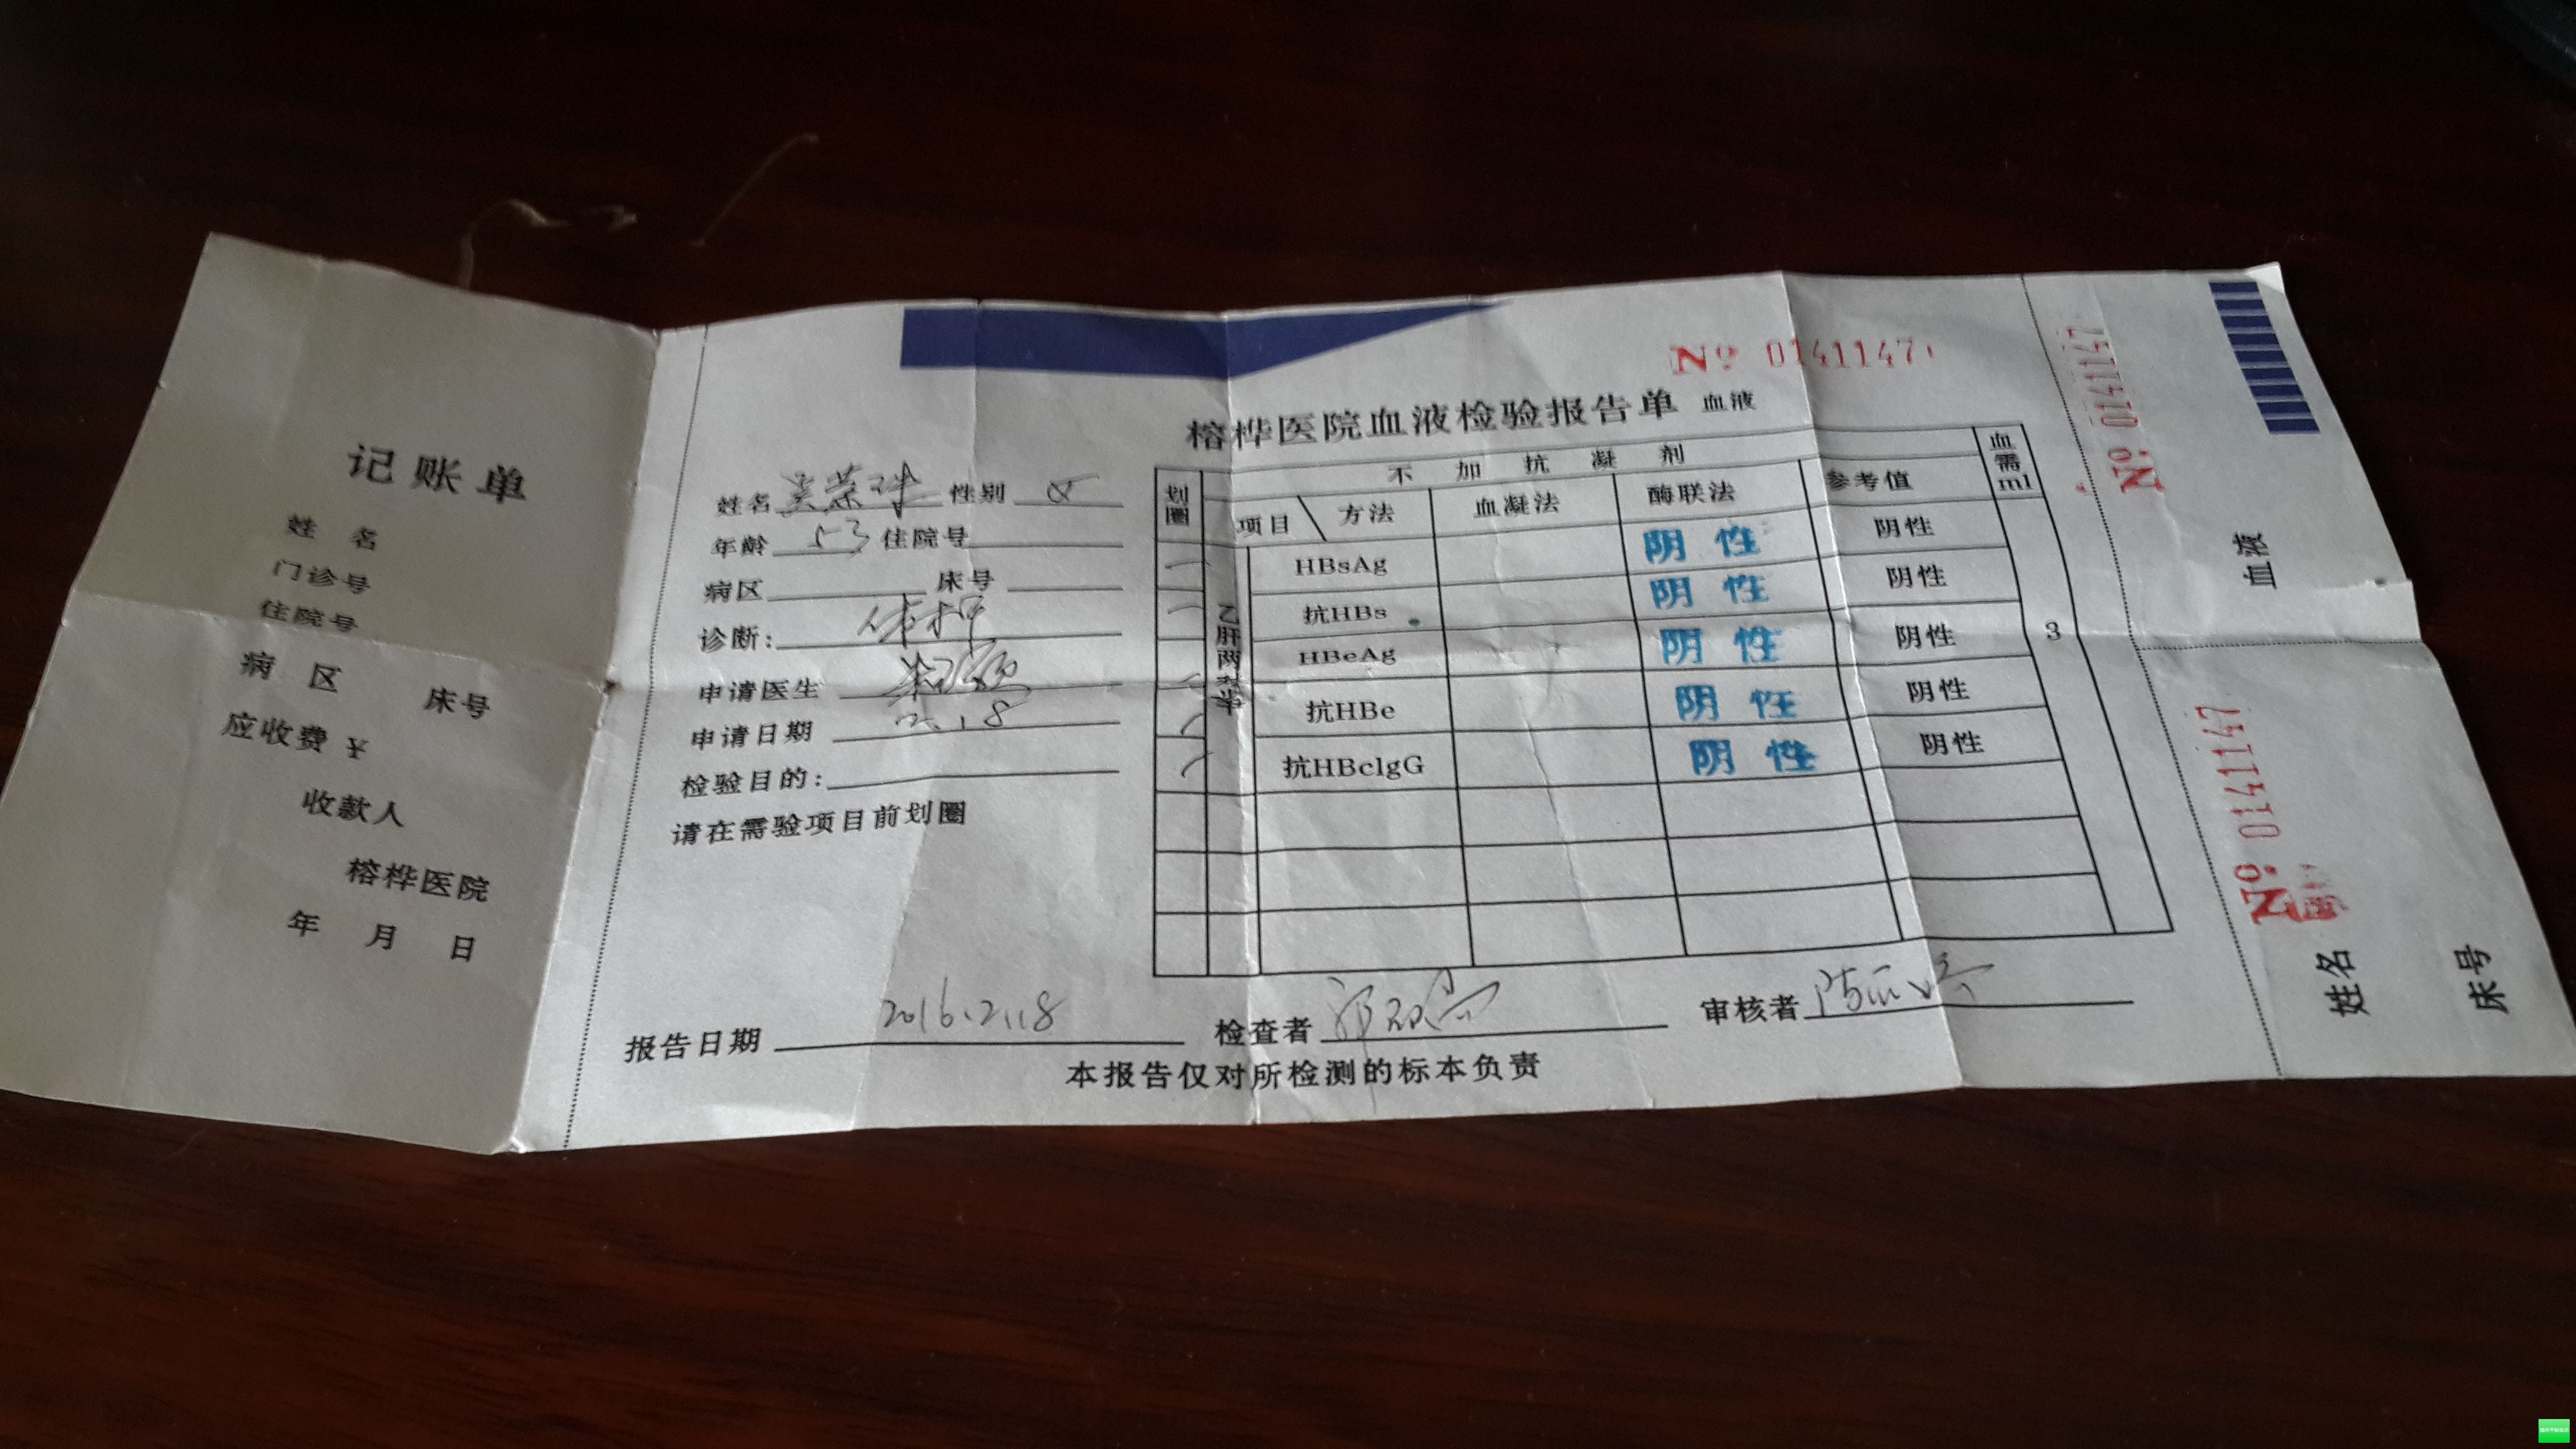 记账单
姓 名
门诊号
住院号
病 区 床号
应收费 ¥
收款人
榕桦医院
年 月 日
No 0141147
榕桦医院血液检验报告单 血液
姓名 吴荣珠 性别 女
年龄 53 住院号
病区 床号
诊断: 体检
申请医生
申请日期 2.18
检验目的:
请在需验项目前划圈
划圈 不加抗凝剂 血需ml
项目 \ 方法 血凝法 酶联法 参考值
乙肝两对半
HBsAg 阴性 阴性
抗HBs 阴性 阴性
HBeAg 阴性 阴性 3
抗HBe 阴性 阴性
抗HBclgG 阴性 阴性
报告日期 2016.2.18 检查者 审核者
本报告仅对所检测的标本负责
No 0141147
血液
No 0141147
姓名
床号